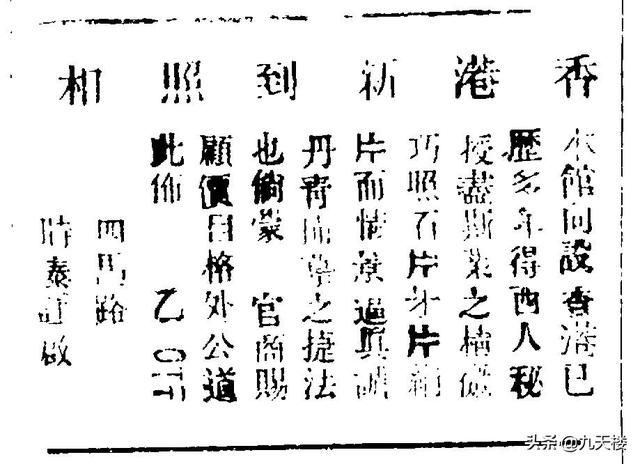 香港新到照相
本館向設香港已
歷多年得西人秘
授盡斯業之微
巧照石片牙片
片而情景逼真誠
丹青之捷法
也倘蒙 官商賜
顧價目格外公道
此佈 乙
四馬路
泰啟
头条 @九天楼